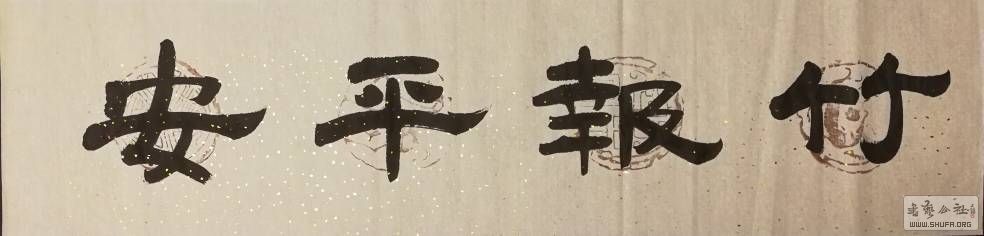 竹報平安
书艺公社
WWW.SHUFA.ORG